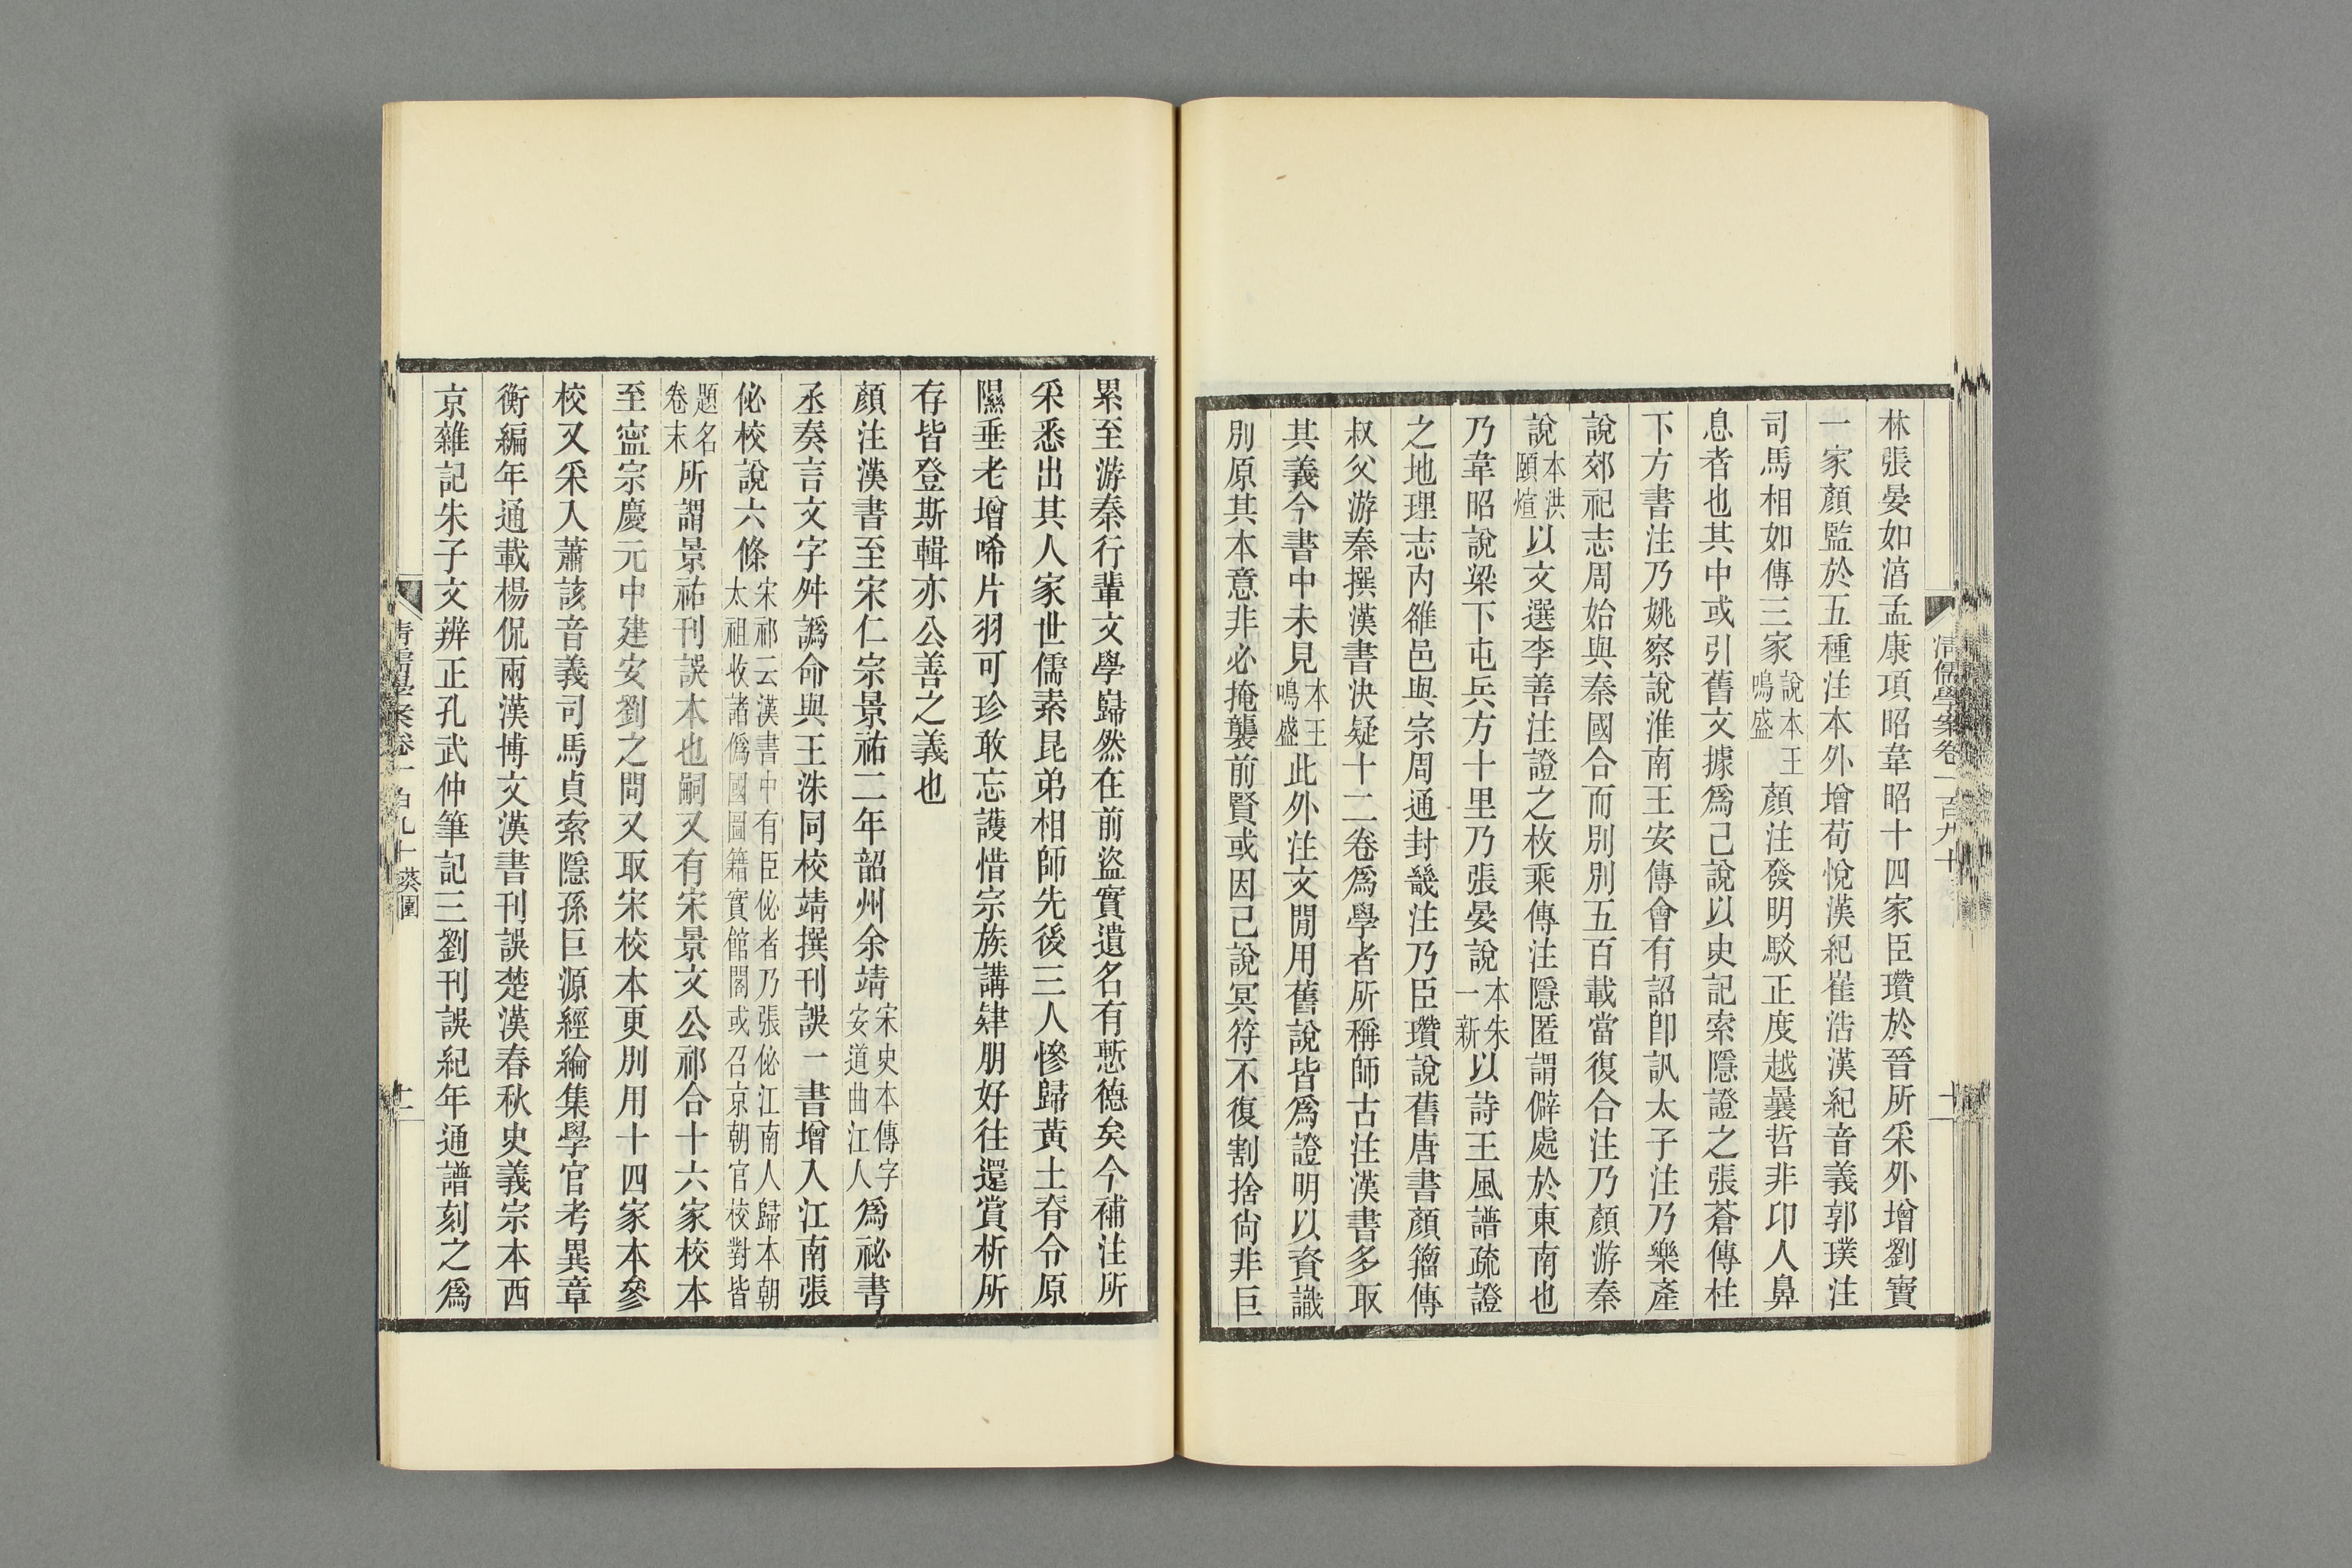 林張晏如湻孟康項昭韋昭十四家臣瓚於晉所采外增劉寶
一家顏監於五種注本外增荀悅漢紀崔浩漢紀音義郭璞注
司馬相如傳三家說本王鳴盛顏注發明駮正度越曩哲非印人鼻
息者也其中或引舊文據爲己說以史記索隱證之張蒼傳柱
下方書注乃姚察說淮南王安傳會有詔卽訊太子注乃樂產
說郊祀志周始與秦國合而別別五百載當復合注乃顏游秦
說本洪頤煊以文選李善注證之枚乘傳注隱匿謂僻處於東南也
乃韋昭說梁下屯兵方十里乃張晏說本朱一新以詩王風譜疏證
之地理志內雒邑與宗周通封畿注乃臣瓚說舊唐書顏籀傳
叔父游秦撰漢書決疑十二卷爲學者所稱師古注漢書多取
其義今書中未見本王鳴盛此外注文閒用舊說皆爲證明以資識
別原其本意非必掩襲前賢或因己說冥符不復割捨尙非巨
清儒學案卷一百九十
十一
累至游秦行輩文學巋然在前盜實遺名有慙德矣今補注所
采悉出其人家世儒素昆弟相師先後三人慘歸黃土脊令原
隰垂老增唏片羽可珍敢忘護惜宗族講肄朋好往還賞析所
存皆登斯輯亦公善之義也
顏注漢書至宋仁宗景祐二年韶州余靖宋史本傳字安道曲江人爲祕書
丞奏言文字舛譌命與王洙同校靖撰刊誤一書增入江南張
佖校說六條宋祁云漢書中有臣佖者乃張佖江南人歸本朝太祖收諸僞國圖籍實館閣或召京朝官校對皆
題名卷末所謂景祐刊誤本也嗣又有宋景文公祁合十六家校本
至寍宗慶元中建安劉之問又取宋校本更別用十四家本參
校又采入蕭該音義司馬貞索隱孫巨源經綸集學官考異章
衡編年通載楊侃兩漢博文漢書刊誤楚漢春秋史義宗本西
京雜記朱子文辨正孔武仲筆記三劉刊誤紀年通譜刻之爲
清儒學案卷一百九十 葵園
十二